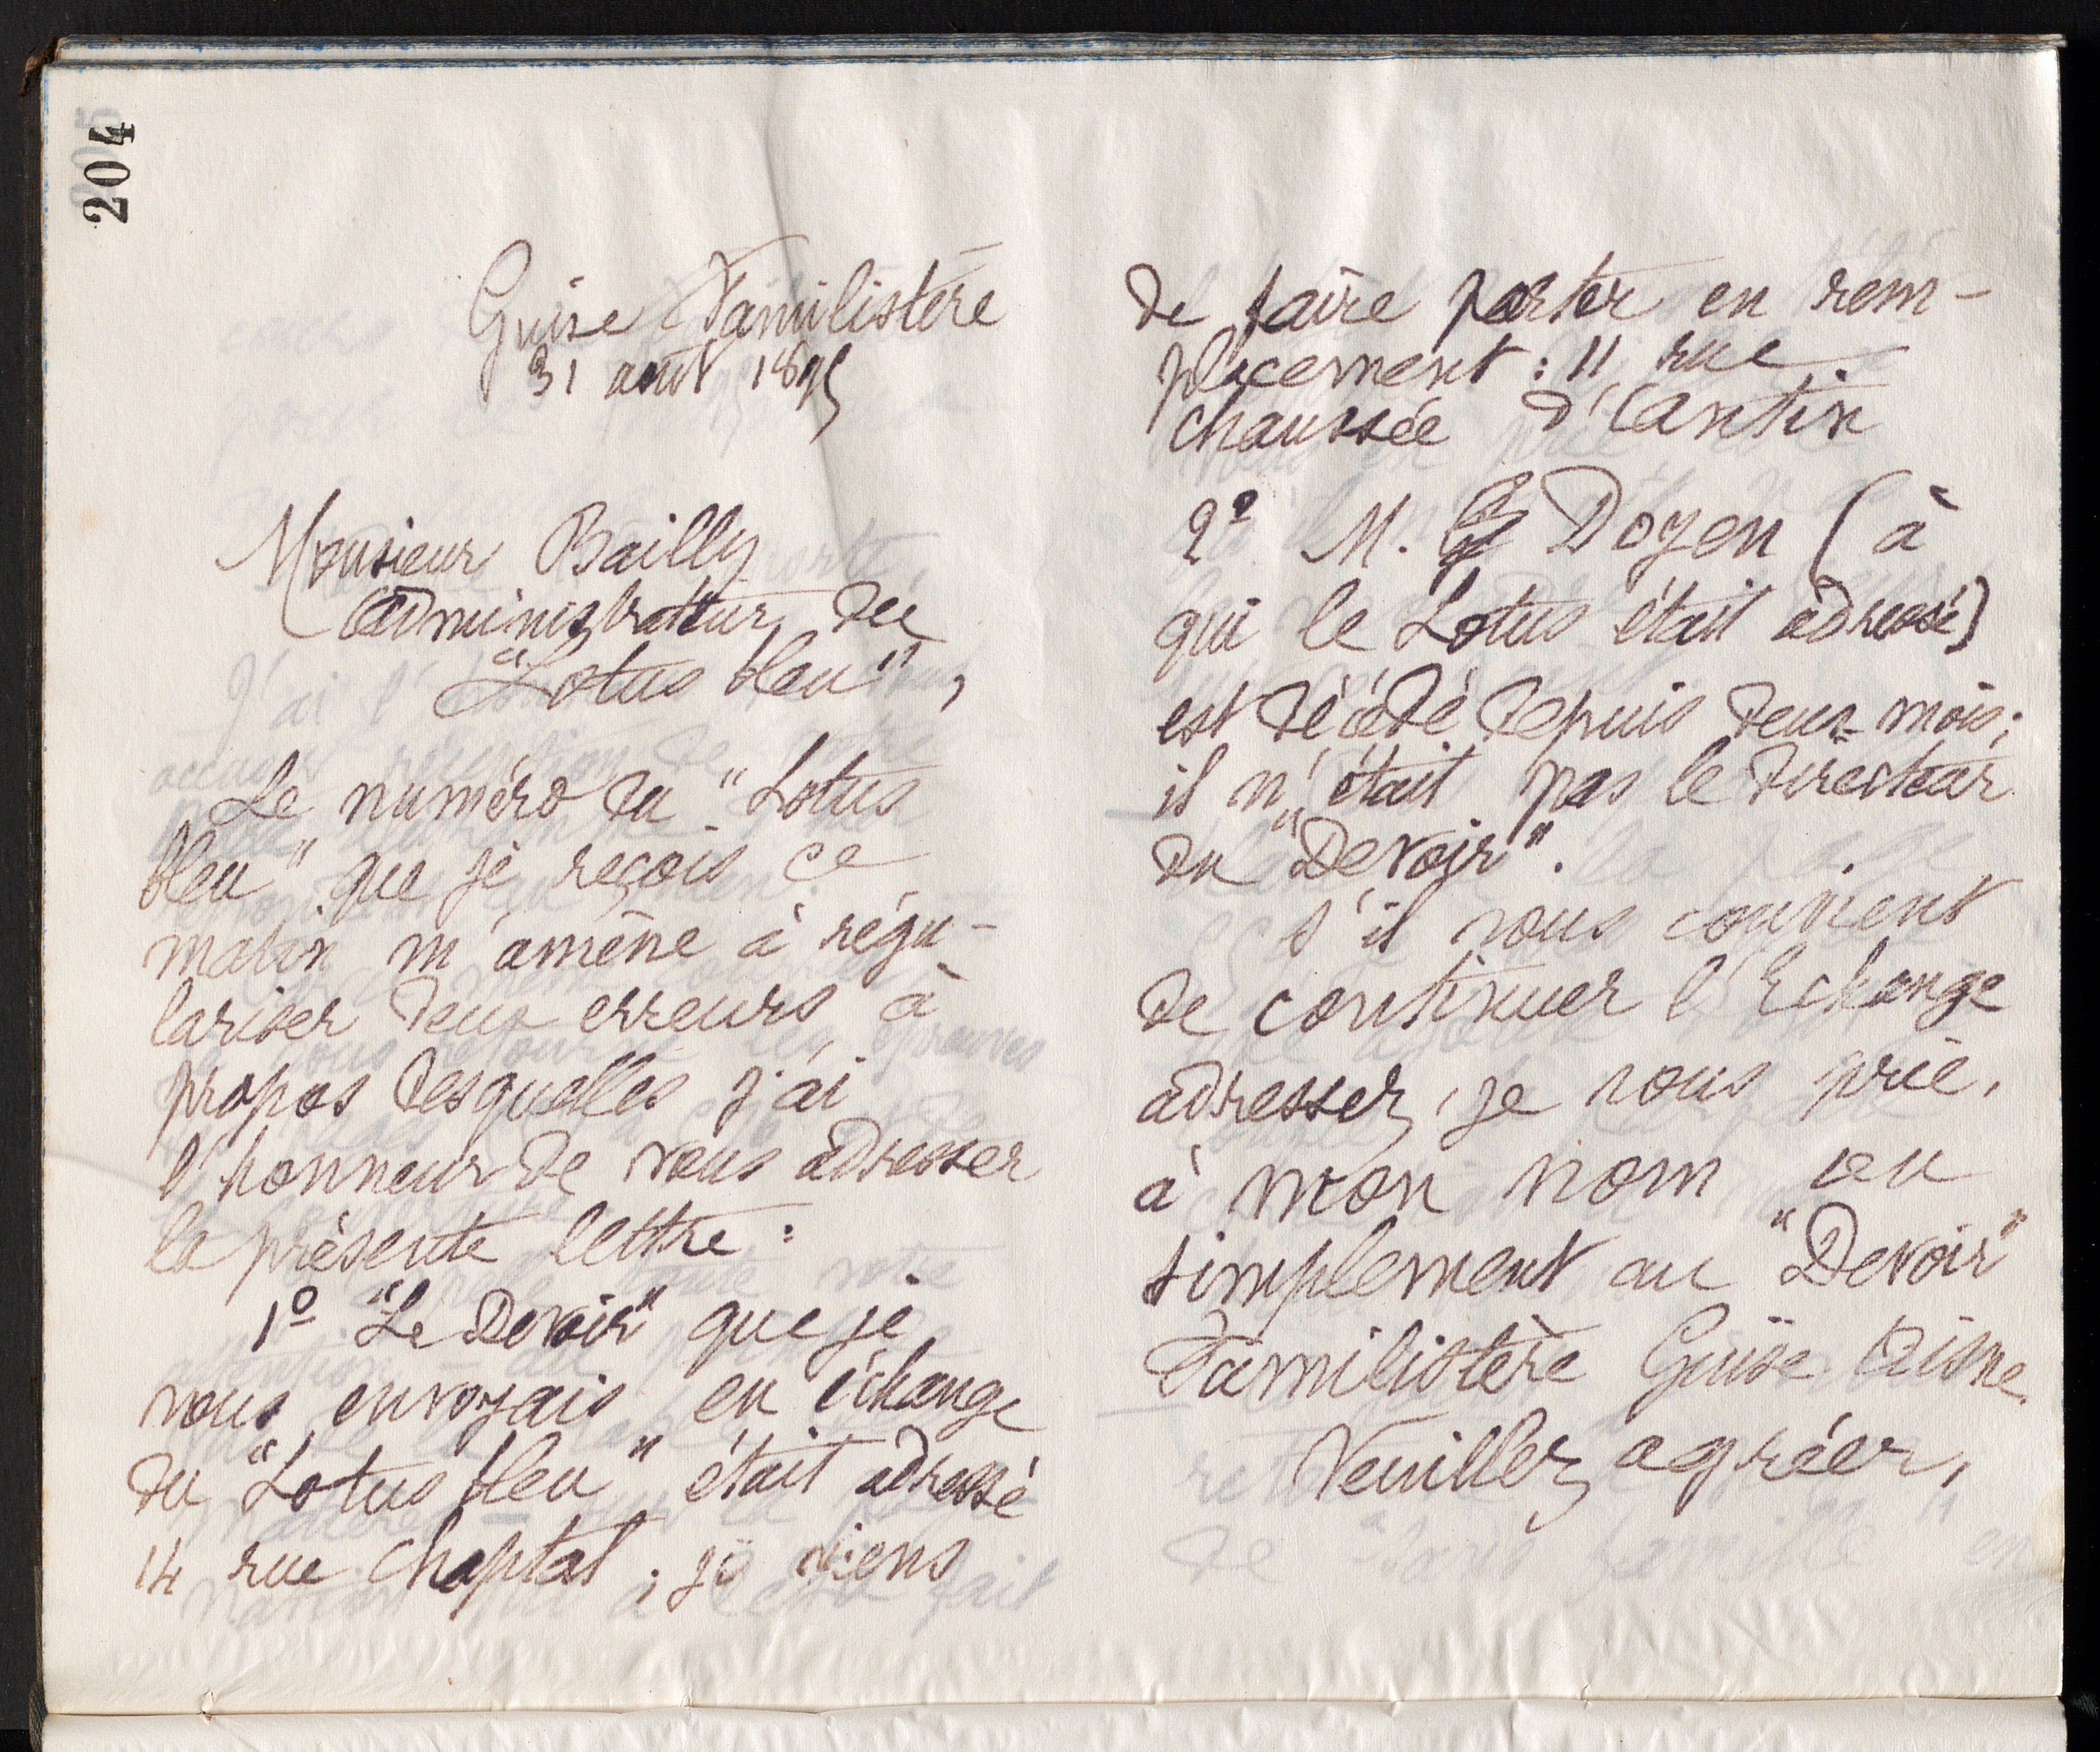 204
Guise Familistère
31 août 1895
Monsieur Bailly
Administrateur du
"Lotus bleu",
Le numéro du "Lotus
bleu" que je reçois ce
matin m'amène à régu-
lariser deux erreurs à
propos desquelles j'ai
l'honneur de vous adresser
la présente lettre :
1º "Le Devoir" que je
vous envoyais en échange
du "Lotus bleu" était adressé
14 rue Chaptal ; je viens
de faire porter en rem-
placement : 11 rue
chaussée d'Antin
2º M. Doyen (à
qui le Lotus était adressé)
est décédé depuis deux mois ;
il n'était pas le directeur
du "Devoir".
S'il vous convient
de continuer l'Echange
adresser, je vous prie,
à mon nom ou
simplement au "Devoir"
Familistère Guise Aisne.
Veuillez agréer,